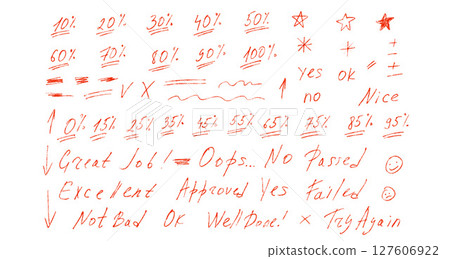 10% 20% 30% 40% 50%
60% 70% 80% 90% 100%
yes ok
V X
no Nice
0% 15% 25% 35% 45% 55% 65% 75% 85% 95%
Great Job! Oops... No Passed
Excellent Approved Yes Failed
Not Bad Ok Well Done! × Try Again
127606922